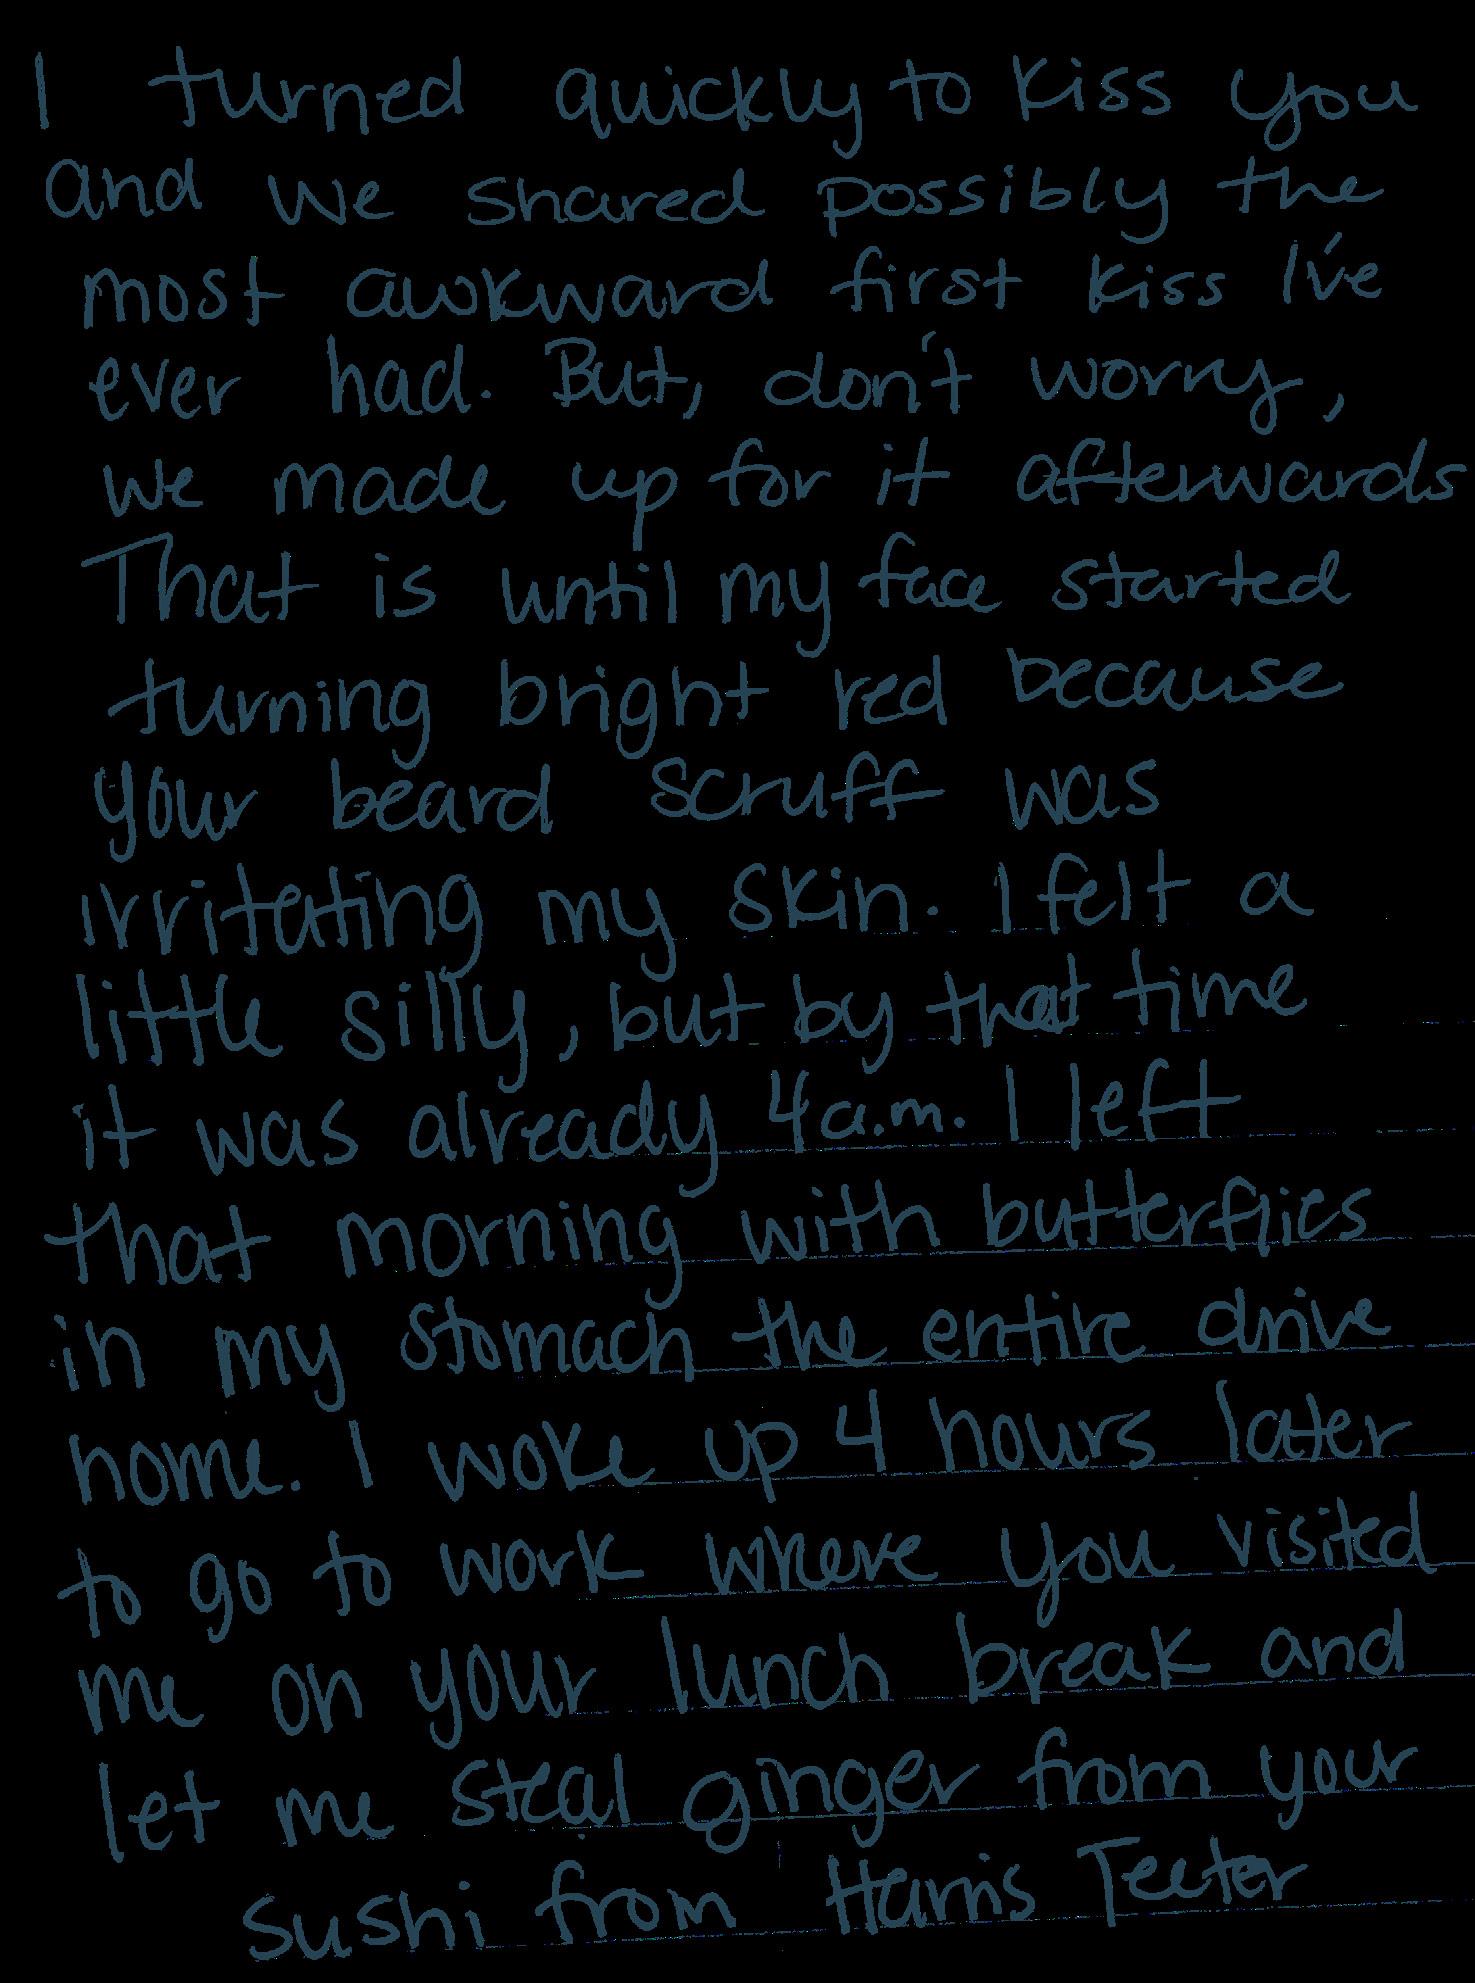 I turned quickly to kiss you
and we shared possibly the
most awkward first kiss I've
ever had. But, don't worry,
we made up for it afterwards
That is until my face started
turning bright red because
your beard scruff was
irritating my skin. I felt a
little silly, but by that time
it was already 4a.m. I left
that morning with butterflies
in my stomach the entire drive
home. I woke up 4 hours later
to go to work where you visited
me on your lunch break and
let me steal ginger from your
sushi from Harris Teeter